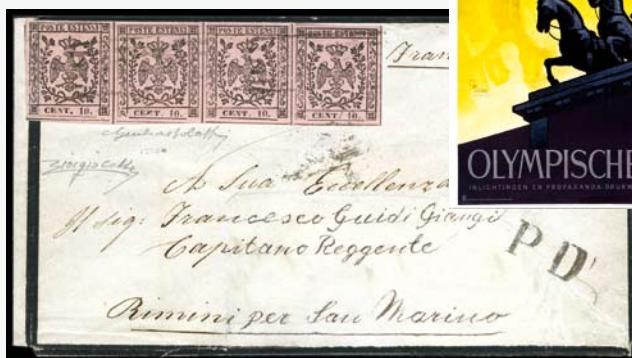 POSTE ESTENSI POSTE ESTENSI POSTE ESTENSI POSTE ESTENSI
CENT. 10. CENT. 10. CENT. 10. CENT. 10.
Fran
A Sua Eccellenza
Il Sig: Francesco Guidi Giangi
Capitano Reggente
Rimini per San Marino
P D
OLYMPISCHE
INLICHTINGEN EN PROPAGANDA-DRUKW